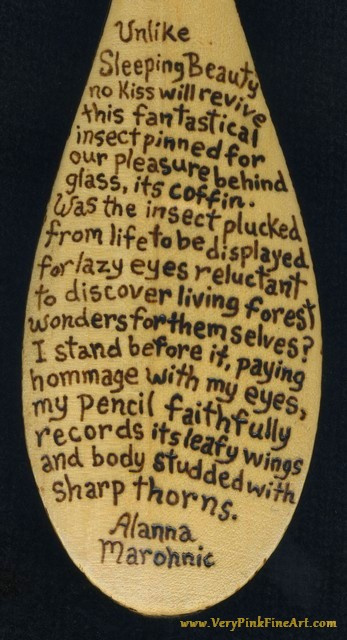 Unlike
Sleeping Beauty
no Kiss will revive
this fantastical
insect pinned for
our pleasure behind
glass, its coffin.
Was the insect plucked
from life to be displayed
for lazy eyes reluctant
to discover living forest
wonders for themselves?
I stand before it, paying
hommage with my eyes,
my pencil faithfully
records its leafy wings
and body studded with
sharp thorns.
Alanna
Marohnic
www.VeryPinkFineArt.com